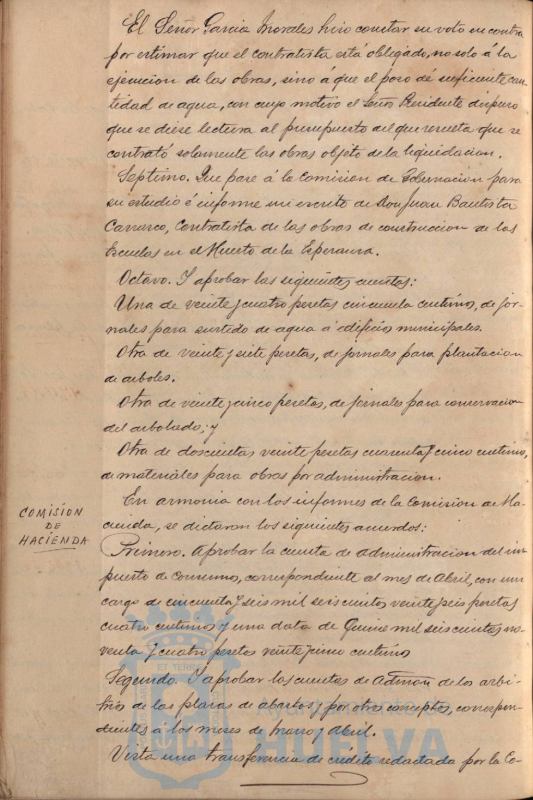 El Señor García Morales hizo constar su voto en contra
por estimar que el contratista está obligado, no solo á la
ejecucion de las obras, sino á que el pozo dé suficiente can-
tidad de agua, con cuyo motivo el Señor Presidente dispuso
que se diese lectura al presupuesto del que resulta que se
contrató solamente las obras objeto de la liquidacion.
Septimo. Que pase á la Comision de Gobernacion para
su estudio é informe un escrito de Don Juan Bautista
Carrasco, Contratista de las obras de construccion de las
Escuelas en el Huerto de la Esperanza.
Octavo. Y aprobar las siguientes cuentas:
Una de veinte y cuatro pesetas cincuenta centimos, de jor-
nales para surtido de agua á edificios municipales.
Otra de veinte y siete pesetas, de jornales para plantacion
de arboles.
Otra de veinte y cinco pesetas, de jornales para conservacion
del arbolado; y
Otra de doscientas veinte pesetas cuarenta y cinco centimos,
de materiales para obras por administracion.
En armonia con los informes de la Comision de Ha-
cienda, se dictaron los siguientes acuerdos:
COMISION
DE
HACIENDA
Primero. Aprobar la cuenta de administracion del im-
puesto de Consumos, correspondiente al mes de Abril, con un
cargo de cincuenta y seis mil seiscientos veinte y seis pesetas
cuatro centimos y una data de Quince mil seiscientos no-
venta y cuatro pesetas veinte y cinco centimos
Segundo. Y aprobar las cuentas de Admon de los arbi-
trios de las plazas de abastos y por otros conceptos, correspon-
dientes á los meses de Marzo y Abril.
Vista una transferencia de credito redactada por la Co-
HUELVA